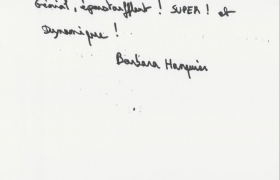 Génial, époustoufflant ! SUPER ! et
Dynamique !
Barbara Hanquier